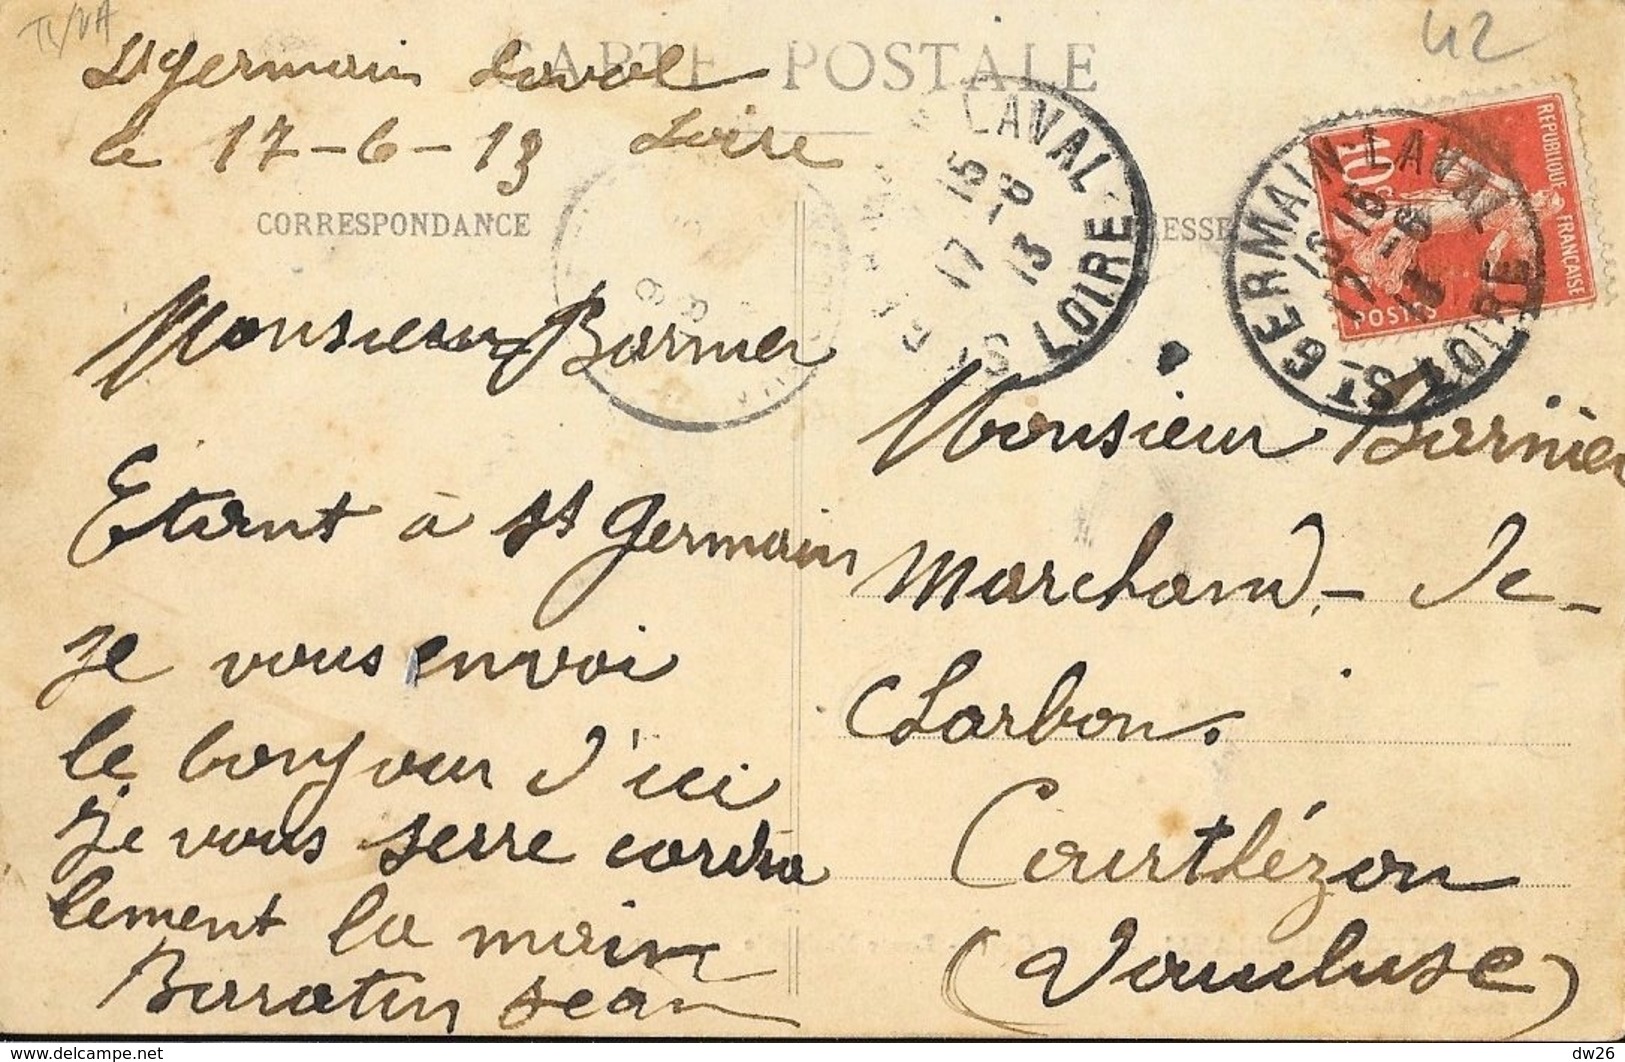 42
CARTE POSTALE
St Germain Laval
le 17-6-13 Loire
CORRESPONDANCE
Monsieur Barnier
Etant à St Germain
Je vous envoi
le bonjour d'ici
Je vous serre cordia
lement la main
Barratin Jean
LAVAL
15
17 -6 13
LOIRE
ST GERMAIN-LAVAL
15
17 -6 13
LOIRE
REPUBLIQUE FRANÇAISE
10c
POSTES
Monsieur Barnier
Marchand - de -
Charbon.
Courthézon
(Vaucluse)
dw26